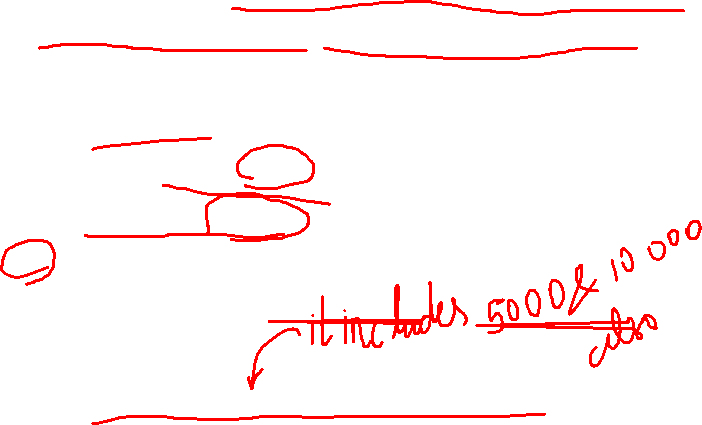 it includes 5000 & 10 000
also